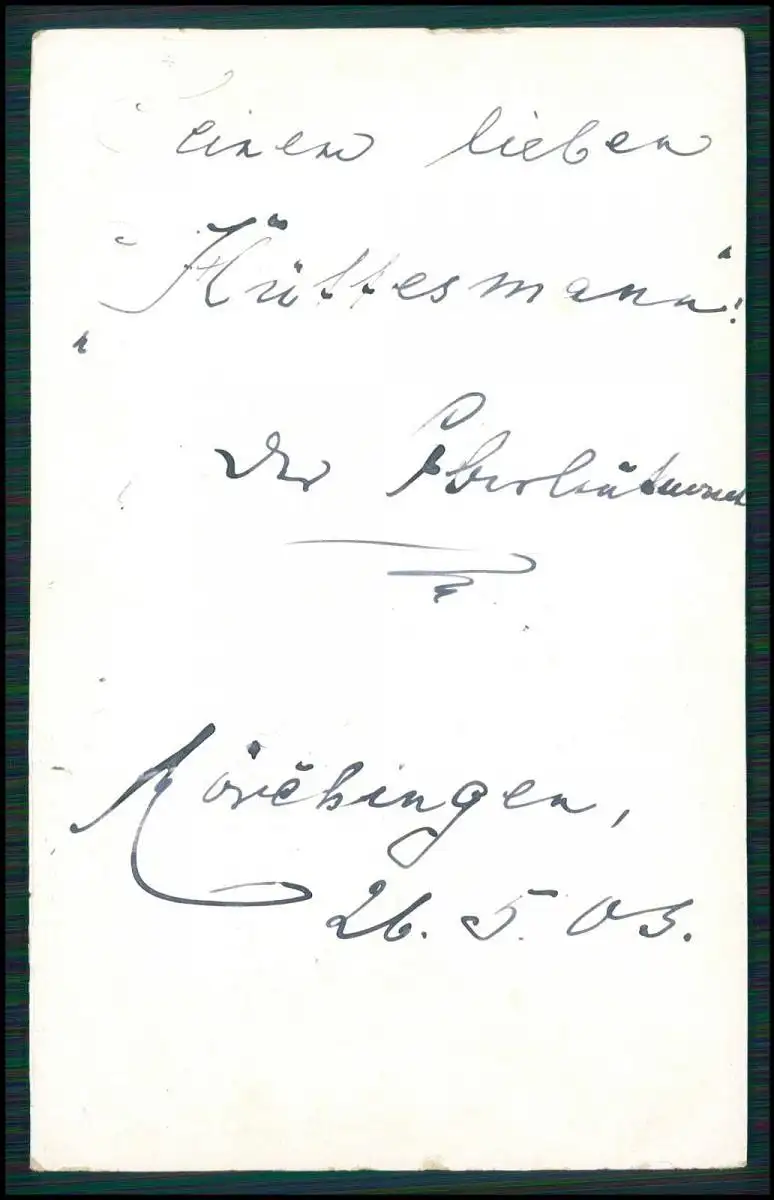 Seinem lieben
„Hüttesmann“!
Der Oberleutnant
Mörchingen,
26. 5. 03.